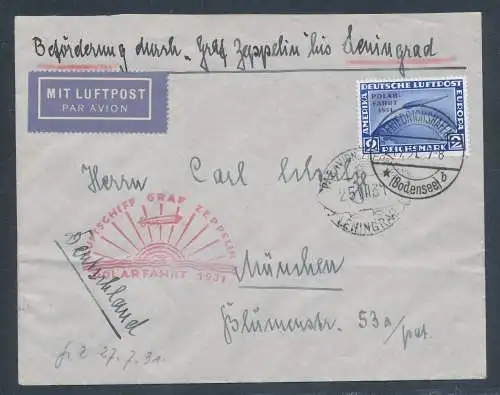 Beförderung durch „Graf Zeppelin" bis Leningrad
MIT LUFTPOST
PAR AVION
DEUTSCHE LUFTPOST
AMERIKA
EUROPA
POLAR-
FAHRT
1931
2 REICHSMARK 2
FRIEDRICHSHAFEN
(Bodensee) b
LENINGRAD
Herrn Carl
LUFTSCHIFF GRAF ZEPPELIN
POLARFAHRT 1931
Deutschland
München
Blumenstr. 53a/part.
27.7.31.